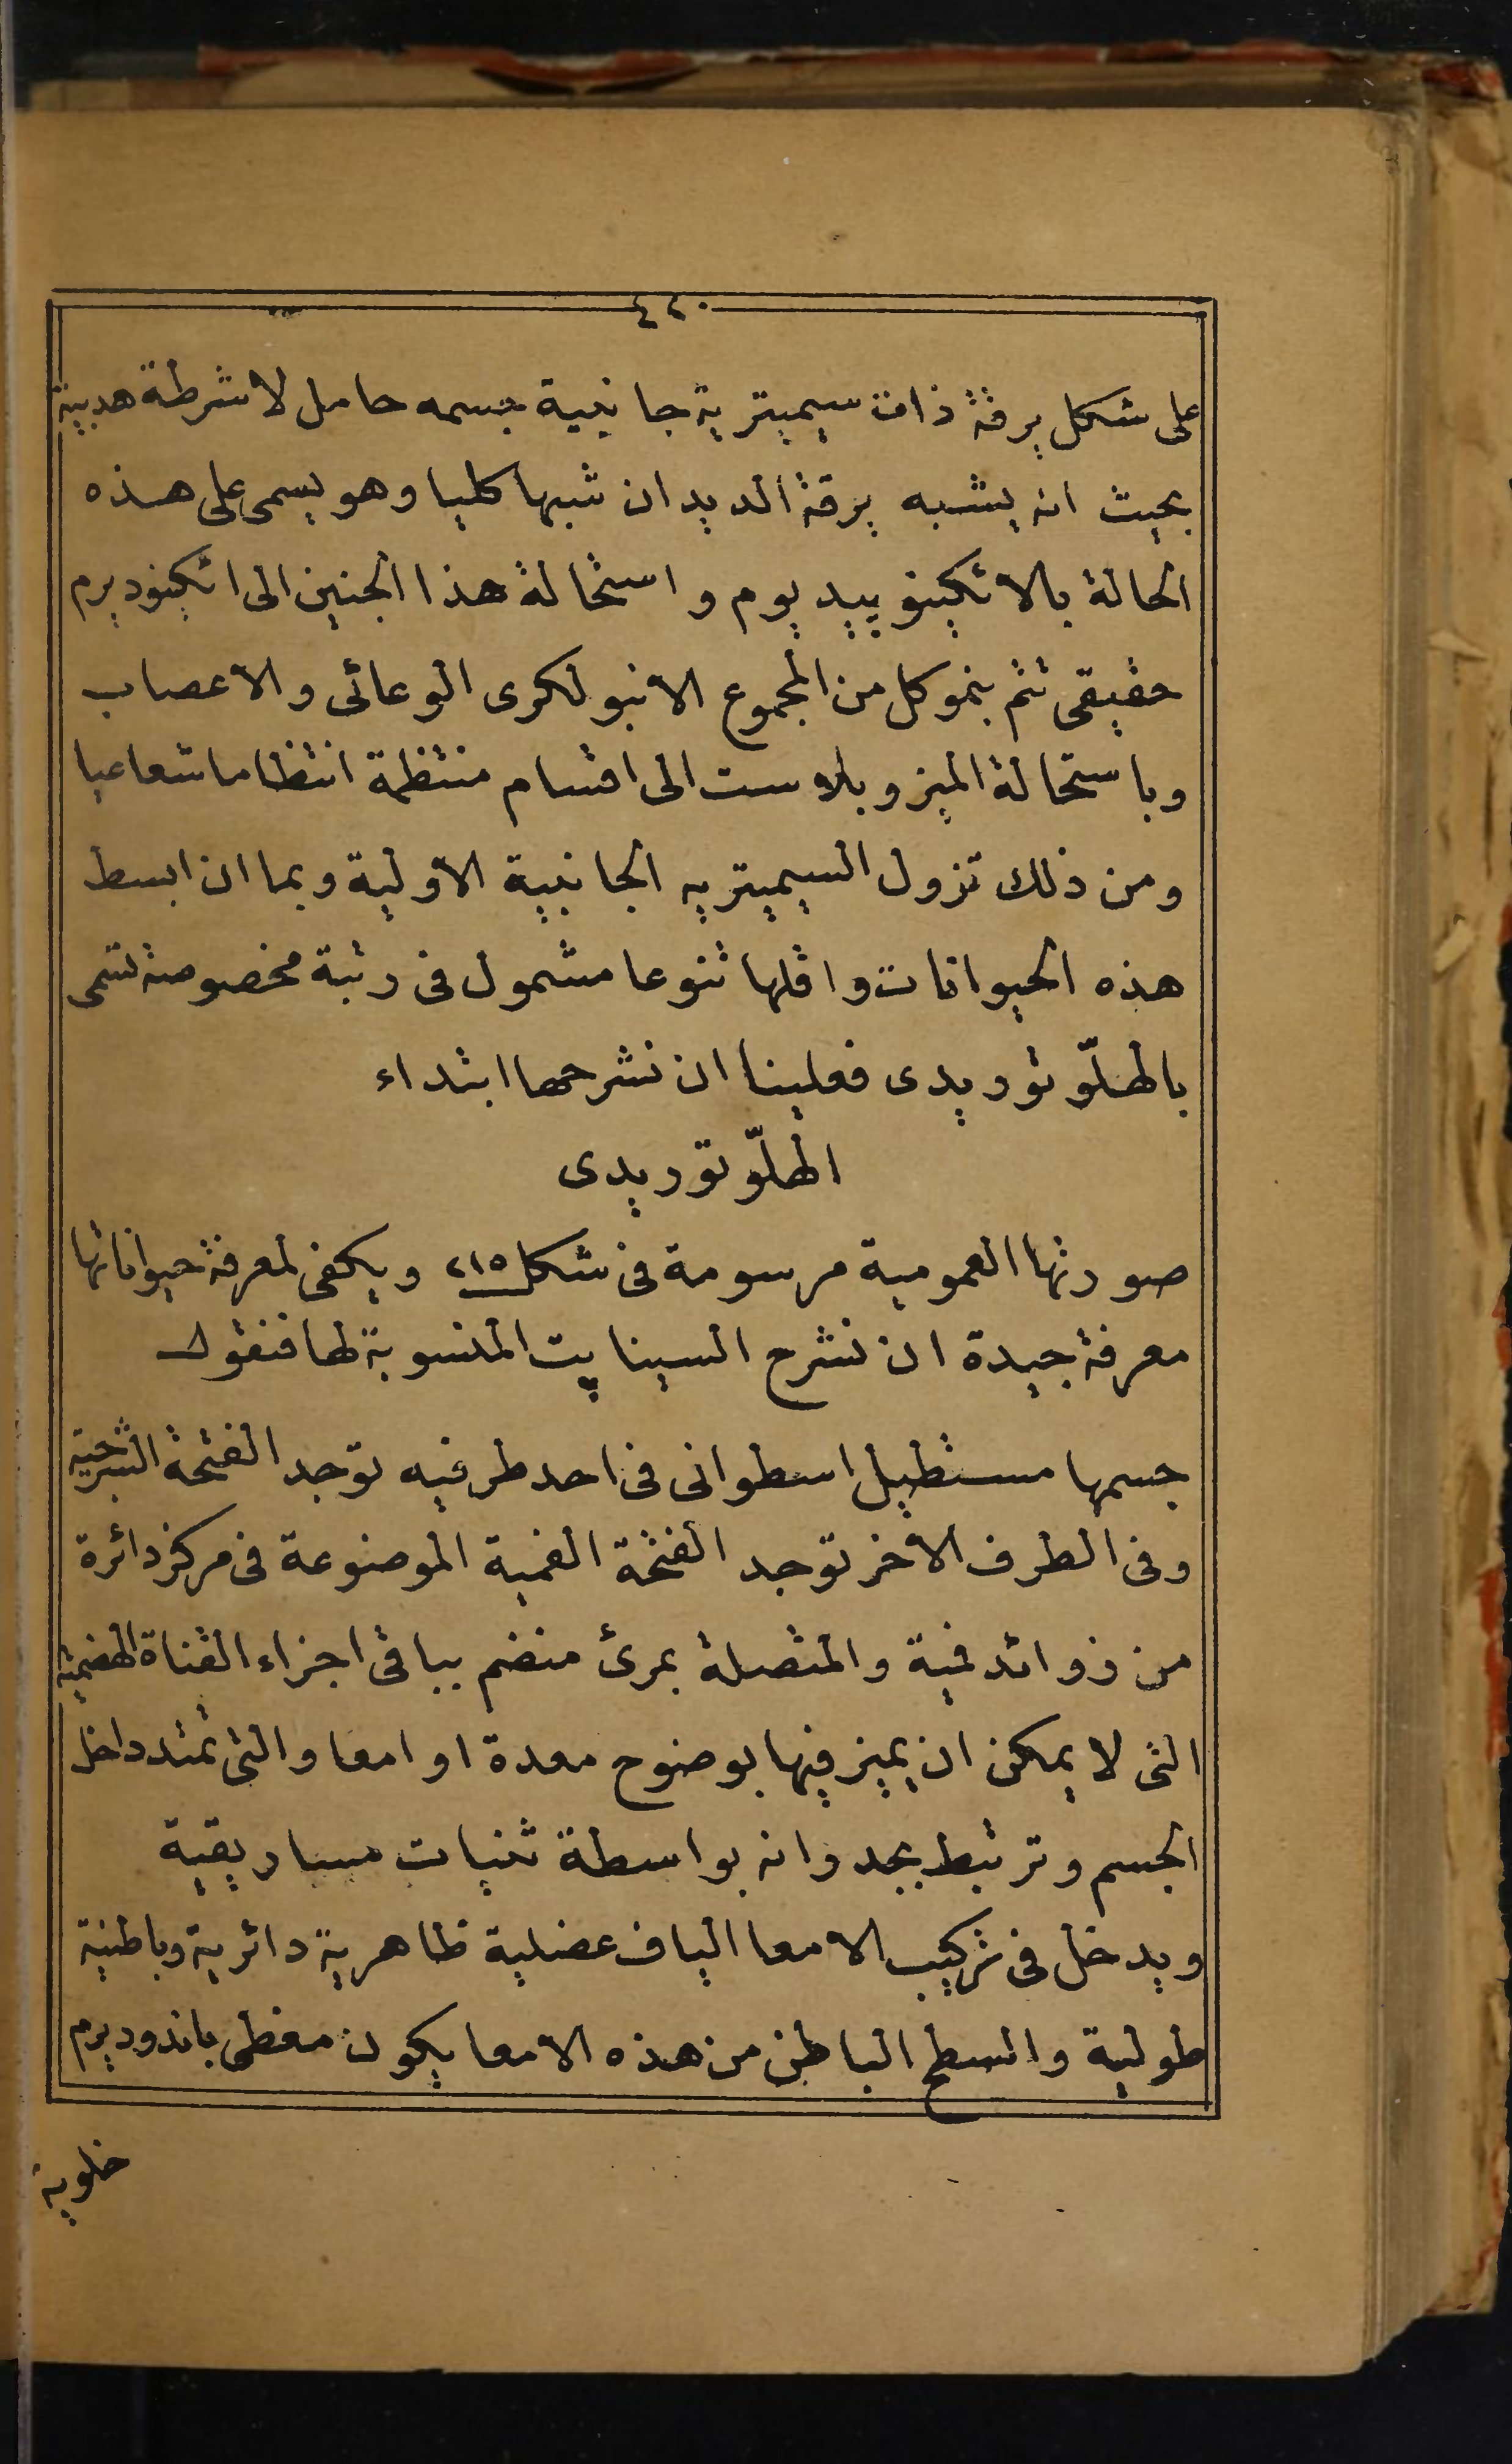 ٤٢٠
على شكل يرقة ذات سيميترية جانبية جسمه حامل لاشرطة هدبية
بحيث انه يشبه يرقة الديدان شبها كليا وهو يسمى على هذه
الحالة بالاتكينوپيديوم واستحالة هذا الجنين الى اتكينوديرم
حقيقى تتم بنمو كل من المجموع الانبولكرى الوعائى والاعصاب
وباستحالة الميزوبلاست الى اقسام منتظمة انتظاما شعاعيا
ومن ذلك تزول السيميتريه الجانبية الاولية وبما ان ابسط
هذه الحيوانات واقلها تنوعا مشمول فى رتبة مخصوصة تسمى
بالهلّوتوريدى فعلينا ان نشرحها ابتداء
الهلّوتوريدى
صورتها العمومية مرسومة فى شكل ٢١٥ ويكفى لمعرفة حيواناتها
معرفة جيدة ان نشرح السيناپت المنسوبة لها فنقول
جسمها مستطيل اسطوانى فى احد طرفيه توجد الفتحة الشرجية
وفى الطرف الاخر توجد الفتحة الفمية الموضوعة فى مركز دائرة
من زوائد فمية والمتصلة بمرئ منضم بباقى اجزاء القناة الهضمية
التى لا يمكن ان يميز فيها بوضوح معدة او امعا والتى تمتد داخل
الجسم وترتبط بجدرانه بواسطة ثنيات مساريقية
ويدخل فى تركيب الامعا الياف عضلية ظاهرية دائرية وباطنية
طولية والسطح الباطن من هذه الامعا يكون مغطى باندوديرم
خلوية